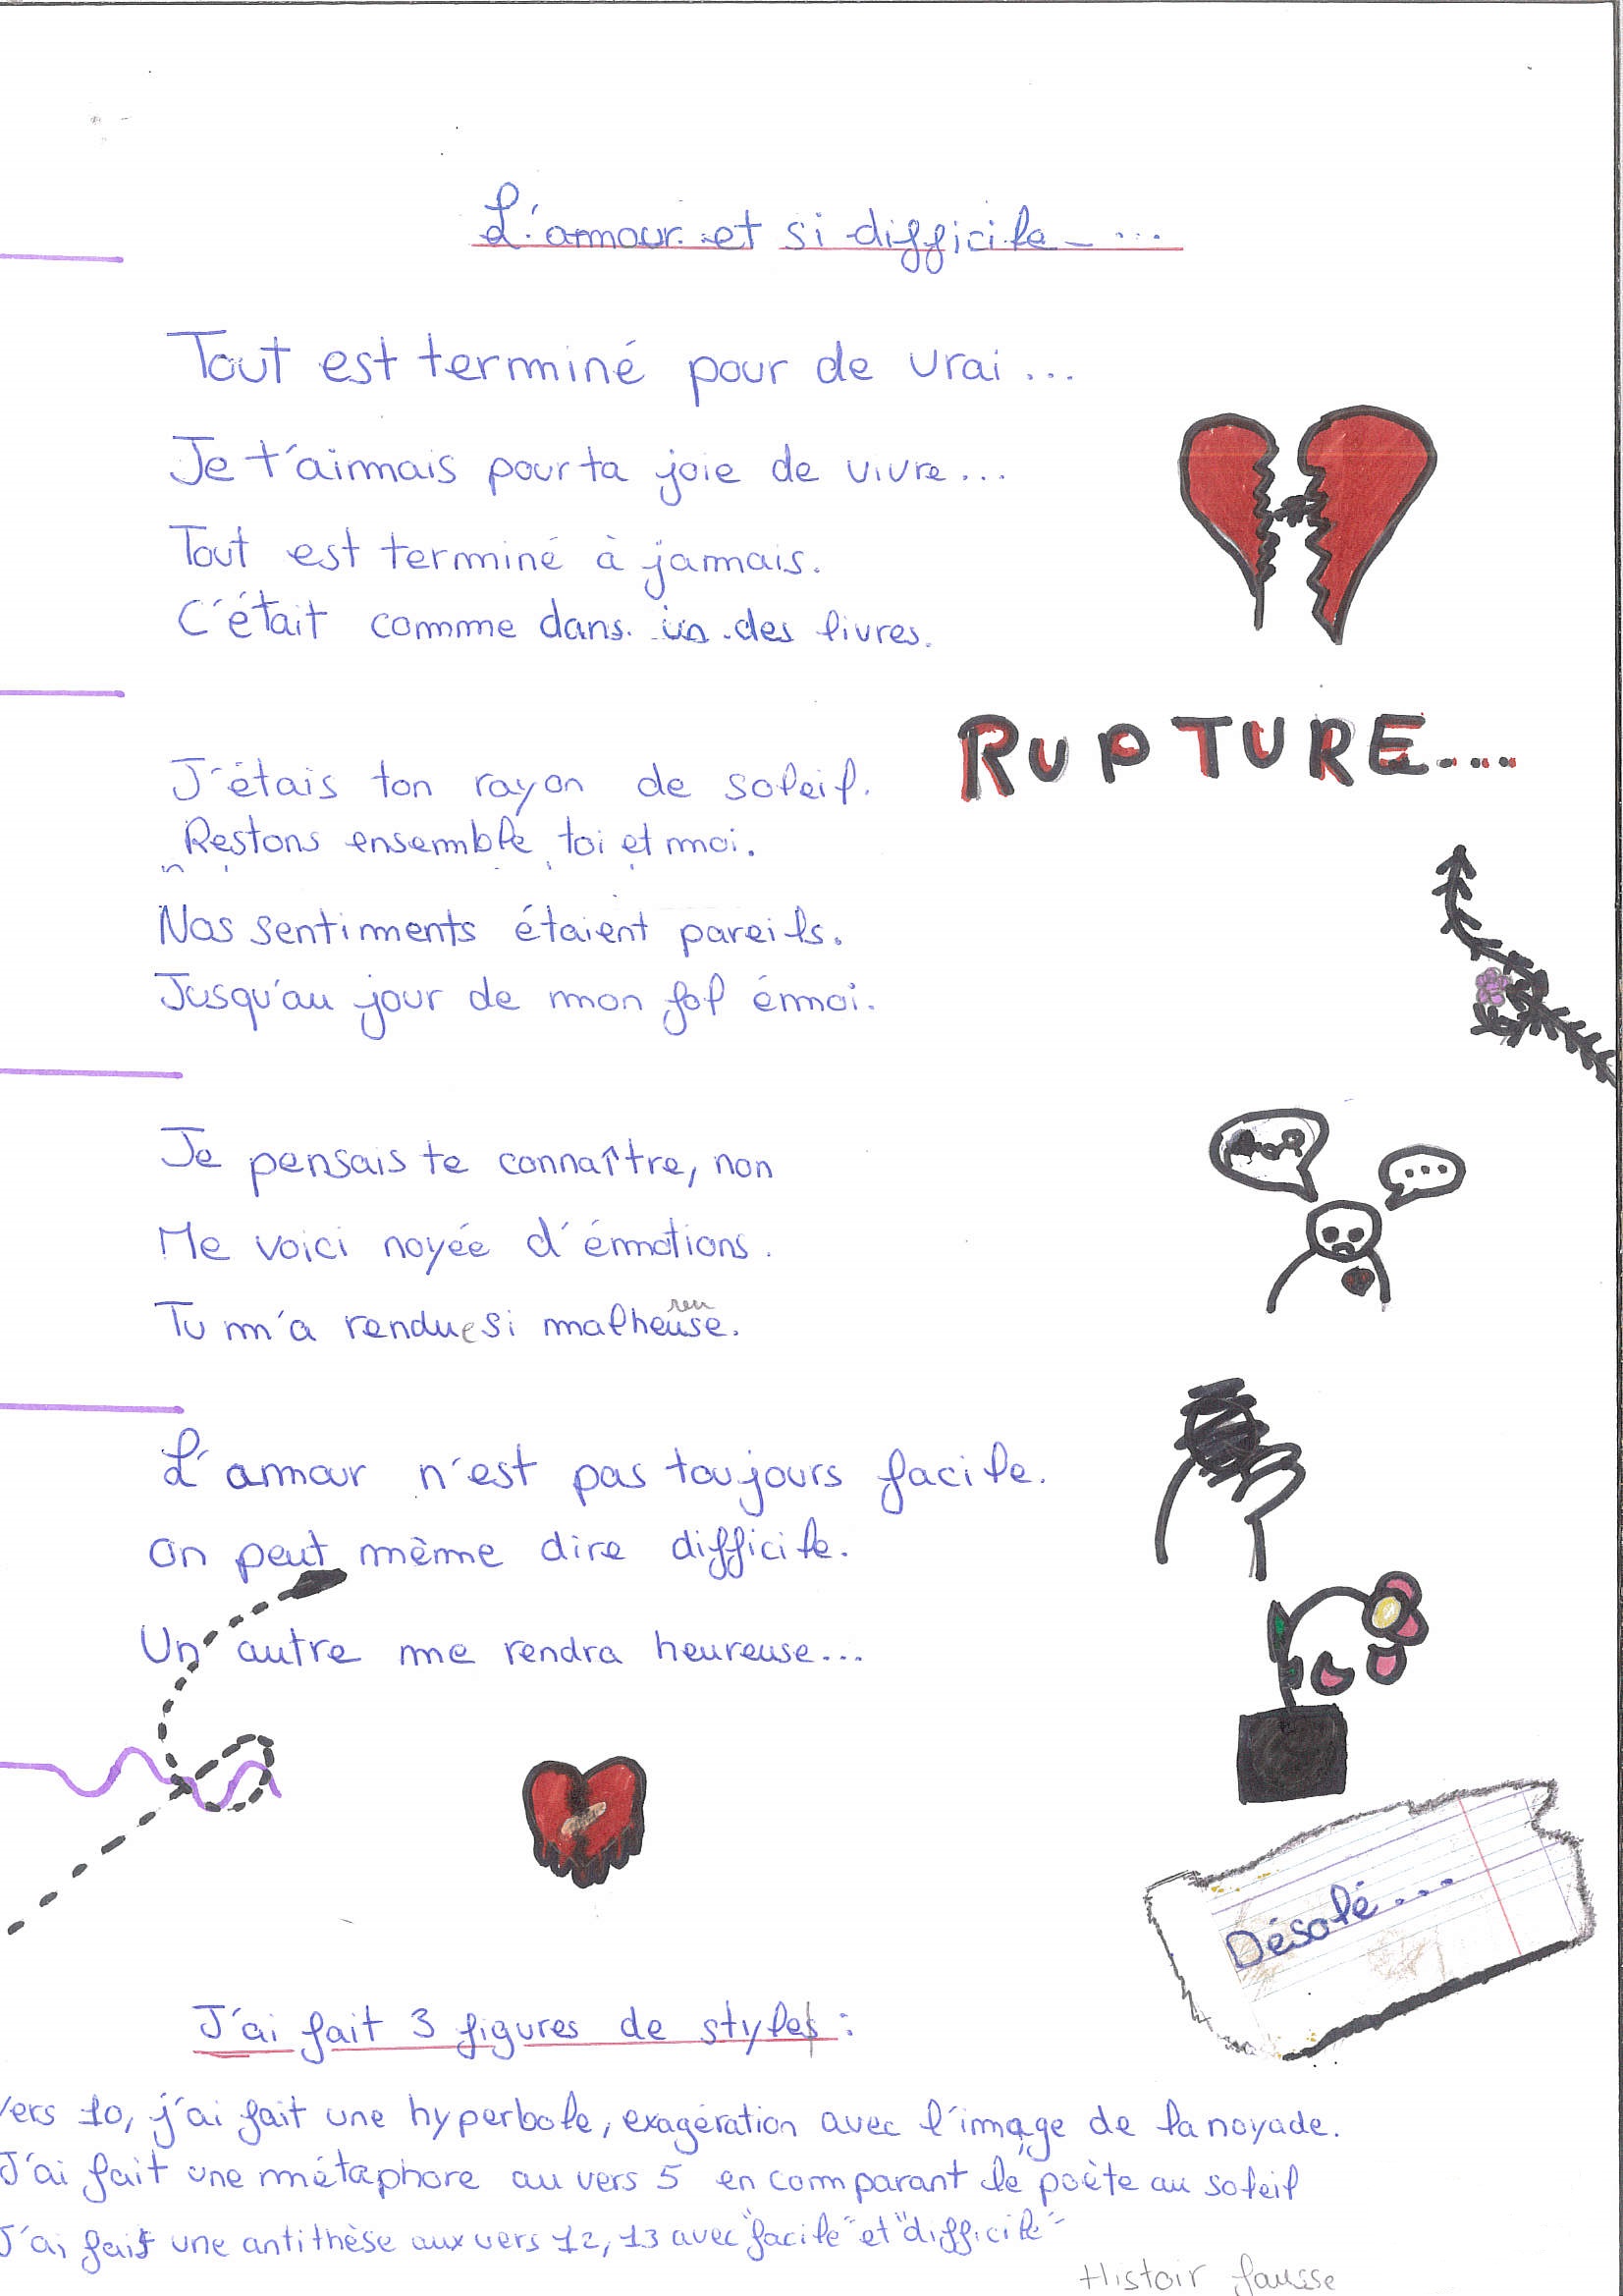 L'amour et si difficile....
Tout est terminé pour de vrai...
Je t'aimais pour ta joie de vivre...
Tout est terminé à jamais.
C'était comme dans des livres.
RUPTURE....
J'étais ton rayon de soleil.
Restons ensemble toi et moi.
Nos sentiments étaient pareils.
Jusqu'au jour de mon fol émoi.
Je pensais te connaître, non
...
Me voici noyée d'émotions.
Tu m'a rendue si malheureuse.
L'amour n'est pas toujours facile.
On peut même dire difficile.
Un autre me rendra heureuse...
Désolé...
J'ai fait 3 figures de style :
Vers 10, j'ai fait une hyperbole, exagération avec l'image de la noyade.
J'ai fait une métaphore au vers 5 en comparant le poète au soleil
J'ai fait une antithèse aux vers 12, 13 avec "facile" et "difficile"
Histoir fausse